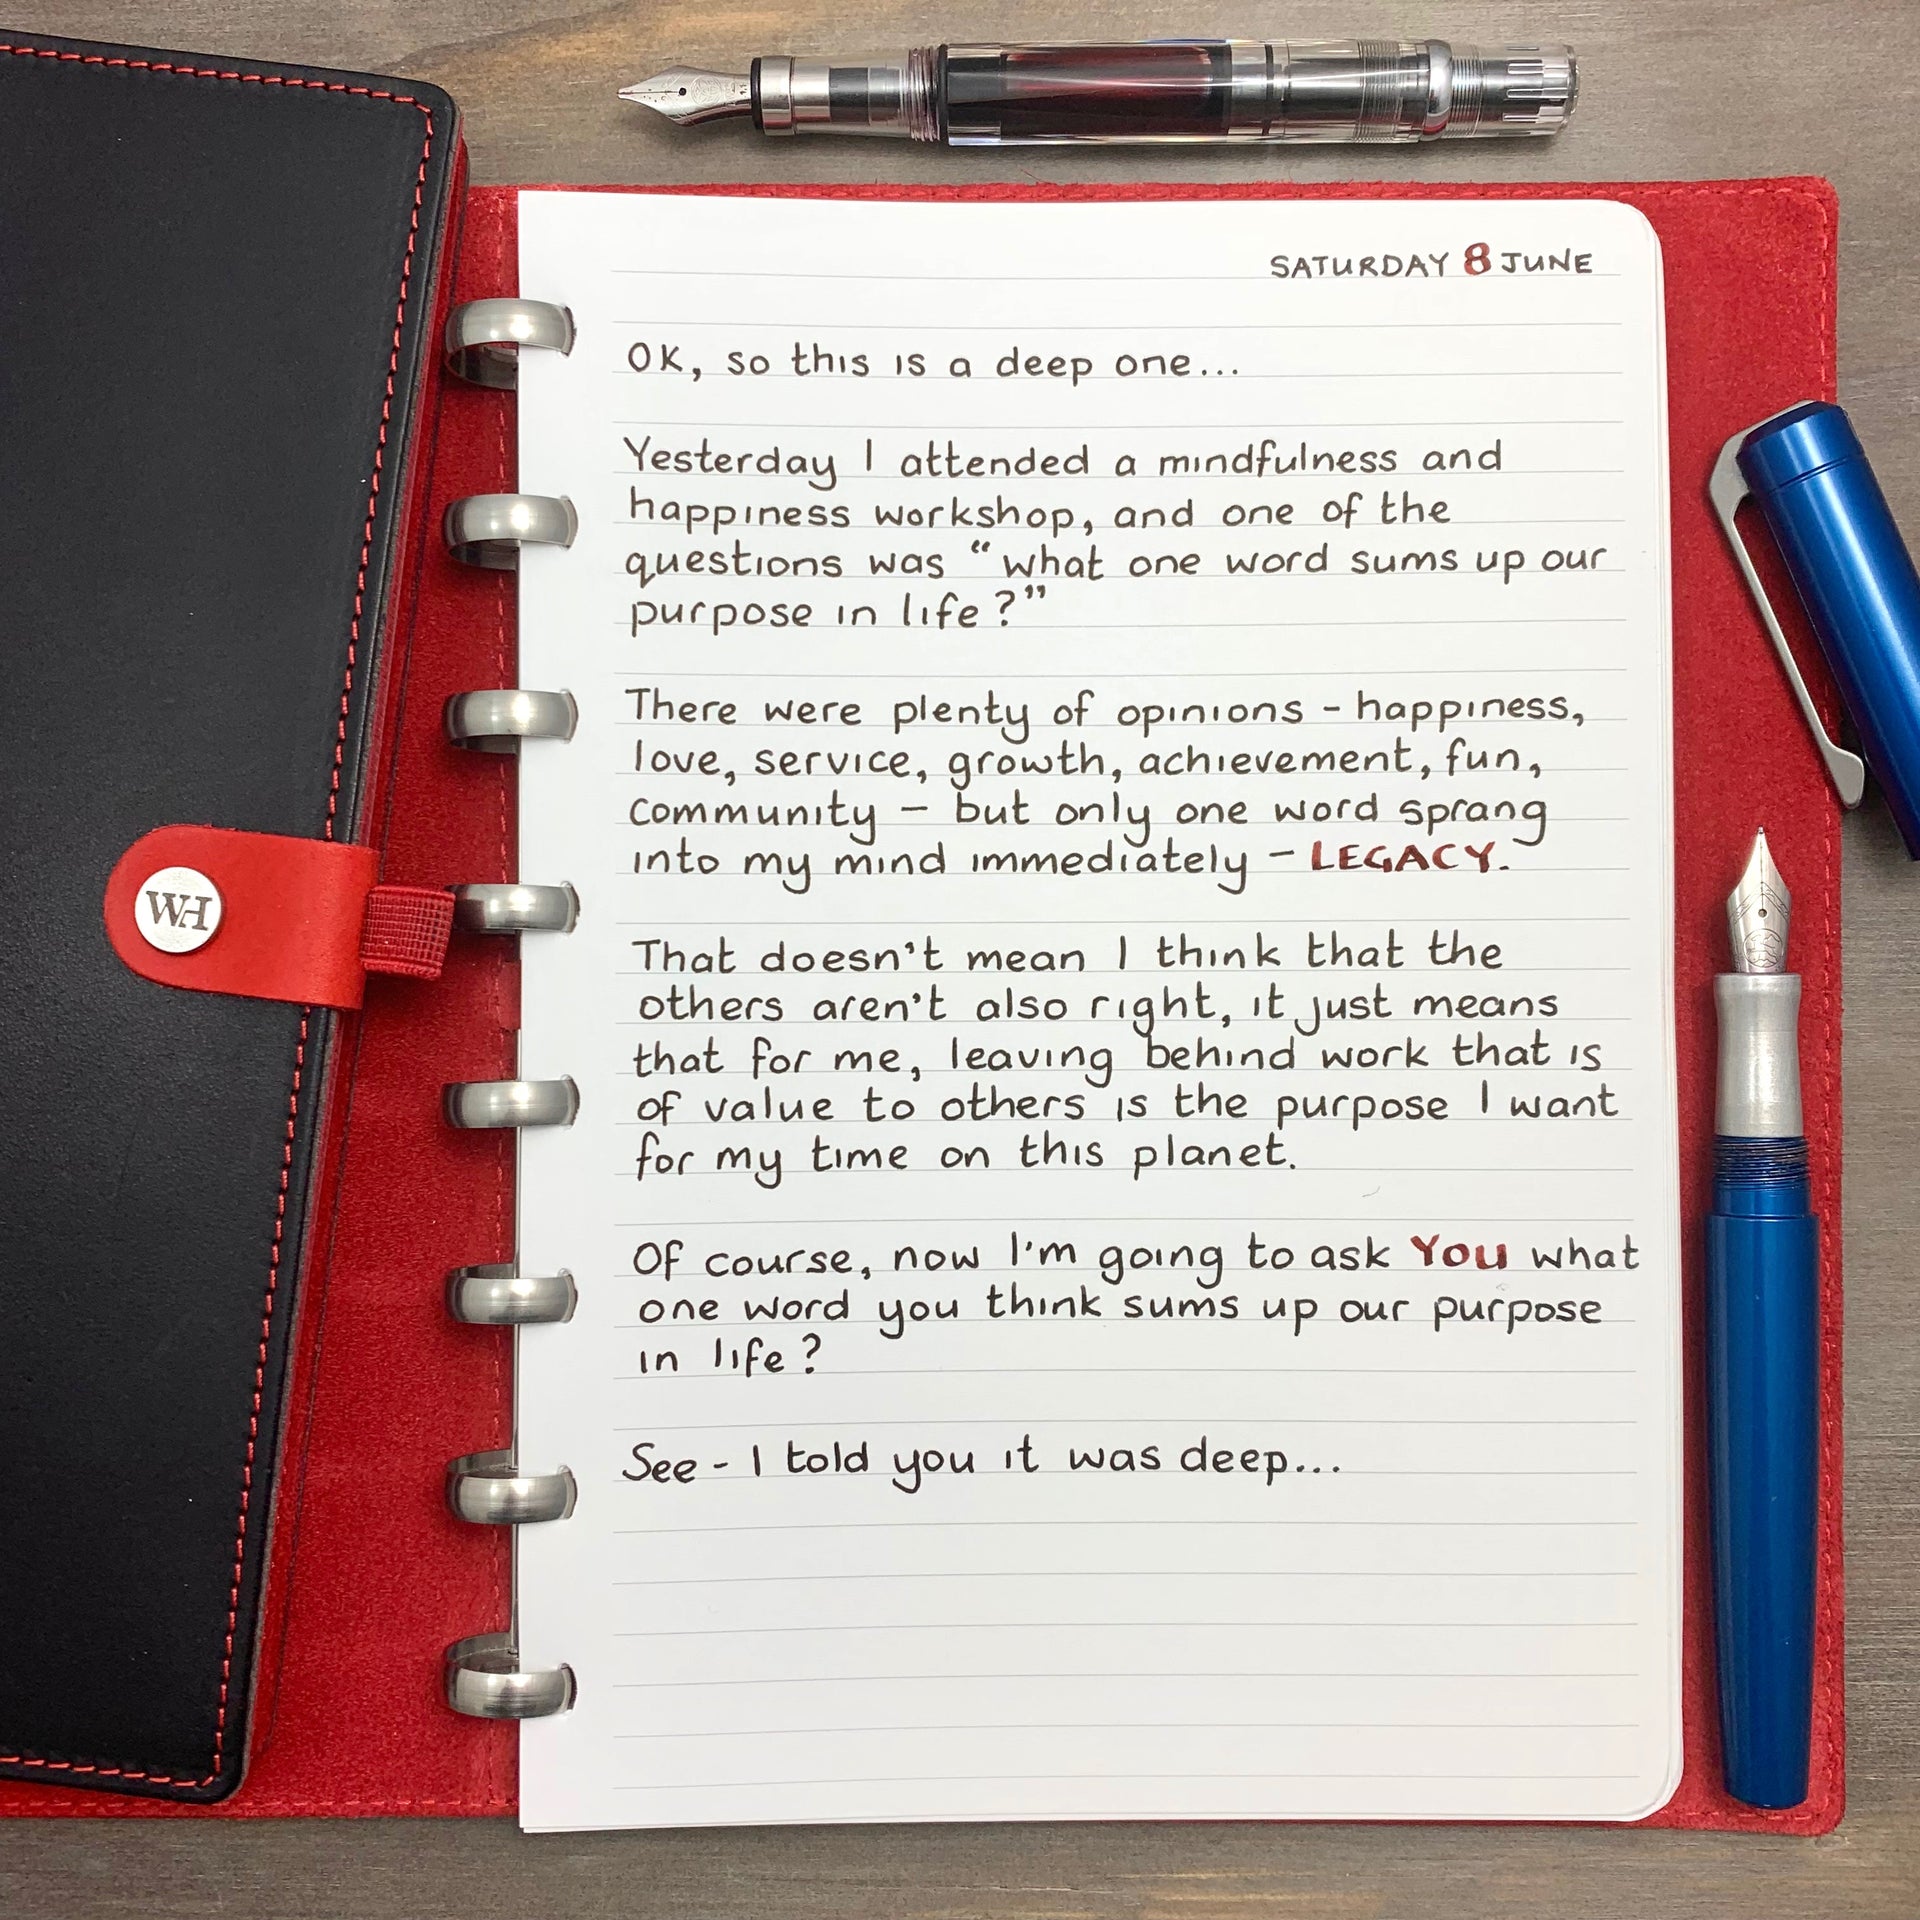 WH
SATURDAY 8 JUNE
OK, so this is a deep one...
Yesterday I attended a mindfulness and
happiness workshop, and one of the
questions was "what one word sums up our
purpose in life?"
There were plenty of opinions - happiness,
love, service, growth, achievement, fun,
community - but only one word sprang
into my mind immediately - LEGACY.
That doesn't mean I think that the
others aren't also right, it just means
that for me, leaving behind work that is
of value to others is the purpose I want
for my time on this planet.
Of course, now I'm going to ask You what
one word you think sums up our purpose
in life?
See - I told you it was deep...